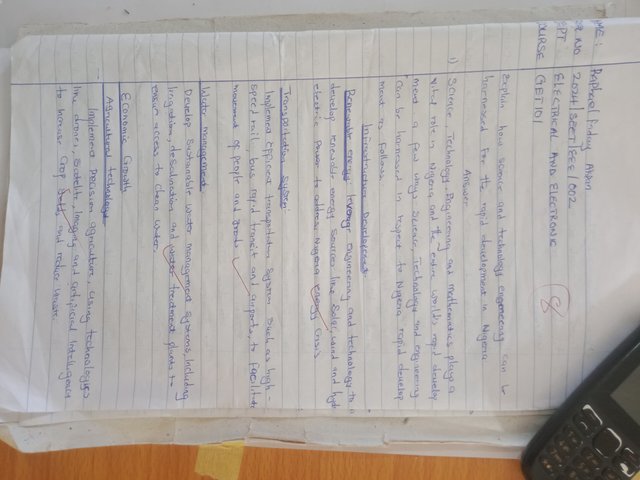 Friday
REG NO 2024/SEET/EEE/002
DPT ELECTRICAL AND ELECTRONIC
COURSE GET101
8
Explain how science and technology engineering can be
harnessed for the rapid development in Nigeria
Answer
1) Science, Technology, Engineering and mathematics plays a
vital role in Nigeria and the entire world's rapid develop
ment a few ways science technology and engineering
can be harnessed in respect to Nigeria rapid develop
ment as follows.
Infrastructure Development
Renewable energy: leverage engineering and technology to
develop renewable energy sources like solar, wind and hydro
electric power to address Nigeria energy crisis
Transportation System
Implement efficient transportation system such as high-
speed rail, bus rapid transit and airports, to facilitate
movement of people and goods
Water management
Develop sustainable water management systems, including
irrigation, desalination and water treatment plants to
ensure access to clean water.
Economic Growth
Agricultural technology
Implement precision agriculture, using technologies
like drones, satellite, imaging and artificial intelligence
to increase crop and reduce waste